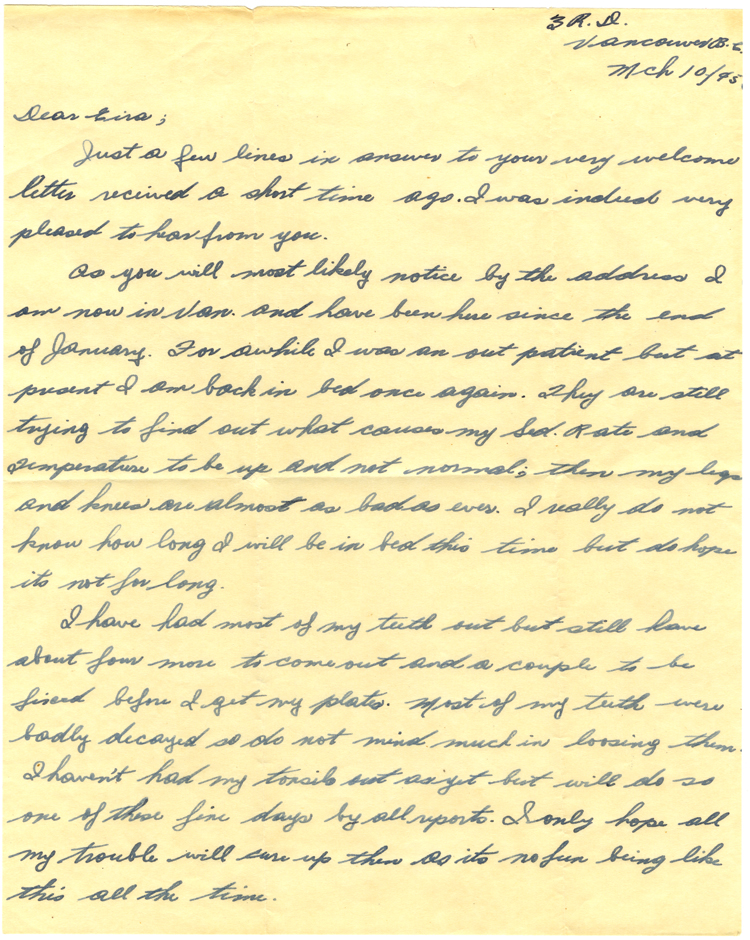 3 R. D.
Vancouver B.C.
Mch 10/45
Dear Eira;
Just a few lines in answer to your very welcome
letter received a short time ago. I was indeed very
pleased to hear from you.
As you will most likely notice by the address I
am now in Van. and have been here since the end
of January. For awhile I was an out patient but at
present I am back in bed once again. They are still
trying to find out what causes my Sed. Rate and
temperature to be up and not normal; then my legs
and knees are almost as bad as ever. I really do not
know how long I will be in bed this time but do hope
its not for long.
I have had most of my teeth out but still have
about four more to come out and a couple to be
fixed before I get my plate. Most of my teeth were
badly decayed so do not mind much in loosing them.
I haven't had my tonsils out as yet but will do so
one of these fine days by all reports. I only hope all
my trouble will cure up then as its no fun being like
this all the time.